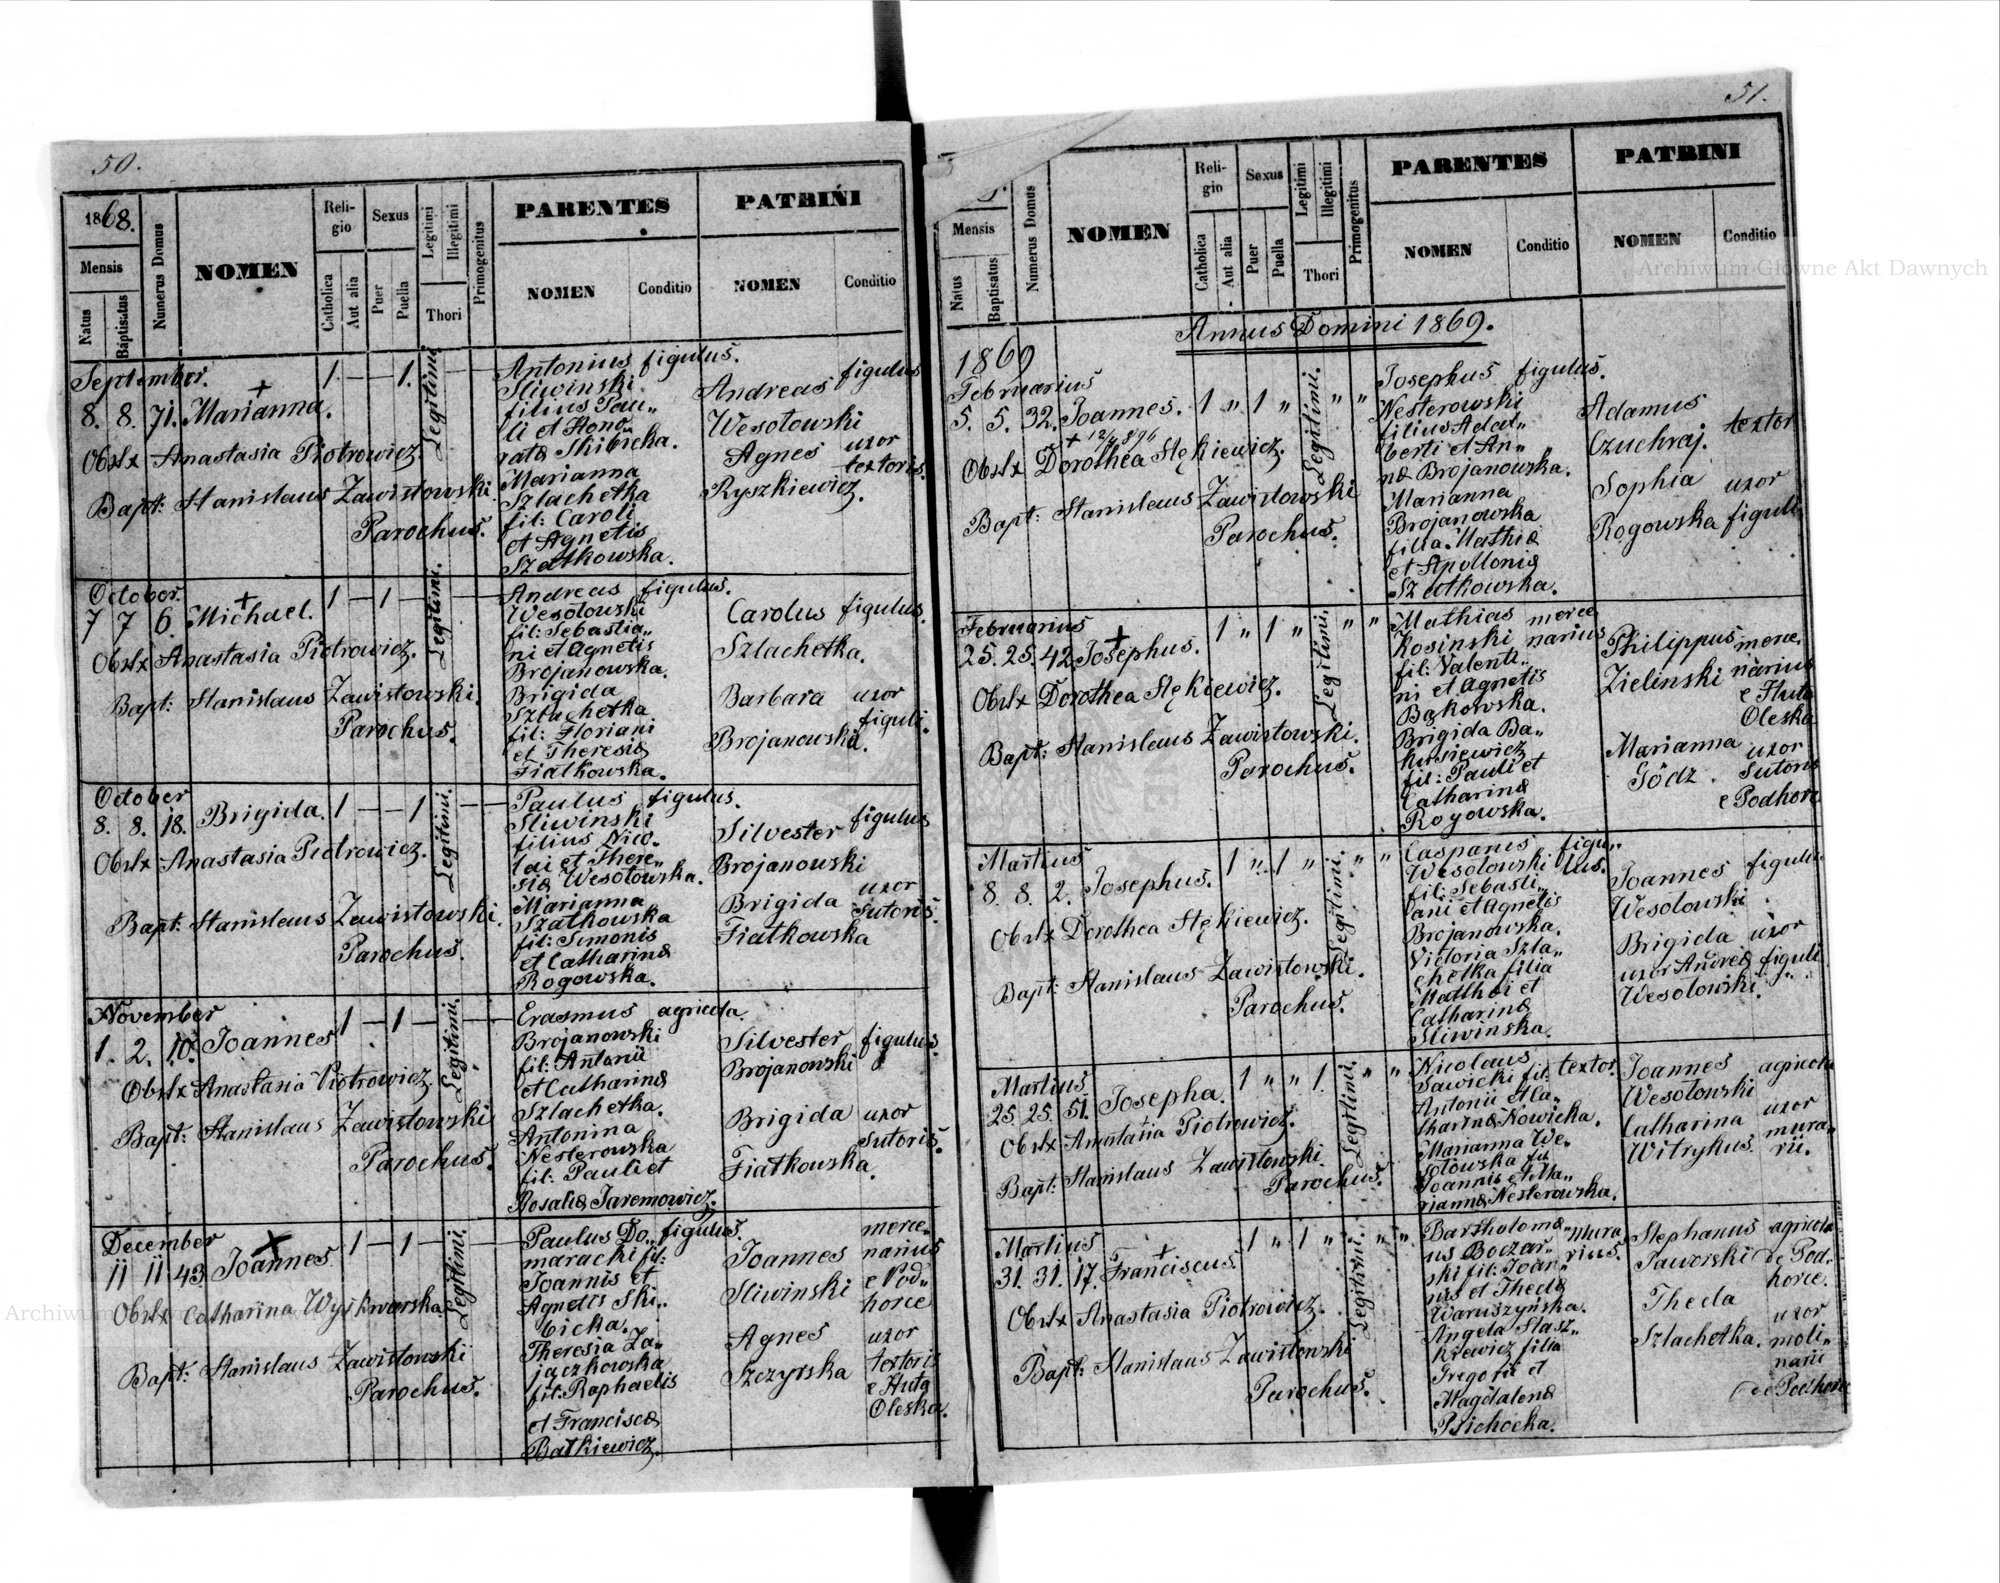 50.
1868.
Mensis
Natus
Baptisatus
Numerus Domus
NOMEN
Reli-
gio
Catholica
Aut alia
Sexus
Puer
Puella
Legitimi
Illegitimi
Thori
Primogenitus
PARENTES
NOMEN
Conditio
PATRINI
NOMEN
Conditio
September.
8. 8. 71. Marianna.
1. — — 1.
Legitimi.
Obstx Anastasia Piotrowicz.
Bapt: Stanislaus Zawistowski
Parochus.
Antonius figulus.
Sliwinski
filius Pau„
li et Hono„
rata Skibicka.
Marianna
Szlachetka
fil: Caroli
et Agnetis
Szatkowska.
Andreas figulus
Wesołowski
Agnes uxor
textoris.
Ryszkiewicz.
October.
7 7 6. Michael.
1 — 1 —
Legitimi.
Obstx Anastasia Piotrowicz.
Bapt: Stanislaus Zawistowski.
Parochus.
Andreas figulus.
Wesołowski
fil: Sebastia„
ni et Agnetis
Brojanowska.
Brigida
Szlachetka
fil: Floriani
et Theresiæ
Fiałkowska.
Carolus figulus.
Szlachetka.
Barbara uxor
figuli.
Brojanowska.
October
8. 8. 18. Brigida.
1 — — 1
Legitimi.
Obstx Anastasia Piotrowicz.
Bapt: Stanislaus Zawistowski.
Parochus.
Paulus figulus.
Sliwinski
filius Nico„
lai et There„
siæ Wesołowska.
Marianna
Szatkowska
fil: Simonis
et Catharinæ
Rogowska.
Silvester figulus
Brojanowski
Brigida uxor
sutoris.
Fiatkowska
November
1. 2. 10. Joannes
1 — 1 —
Legitimi.
Obstx Anastasia Piotrowicz.
Bapt: Stanislaus Zawistowski
Parochus.
Erasmus agricola.
Brojanowski
fil: Antonii
et Catharinæ
Szlachetka.
Antonina
Nesterowska
fil: Pauli et
Rosaliæ Jaremowicz.
Silvester figulus.
Brojanowski
Brigida uxor
sutoris.
Fiatkowska.
December
11 11 43. Joannes
1 — 1 —
Legitimi.
Obstx Catharina Wysk
Bapt: Stanislaus Zawistowski
Parochus.
Paulus Do„ figulus.
maracki fil:
Joannis et
Agnetis Ski„
bicka.
Theresia Za„
jączkowska
fil: Raphaelis
et Franciscæ
Batkiewicz.
Joannes merce„
narius
Sliwinski e Pod„
horce
Agnes uxor
textoris
Szczyrska e Huta
Oleska.
51.
Mensis
Natus
Baptisatus
Numerus Domus
NOMEN
Reli-
gio
Catholica
Aut alia
Sexus
Puer
Puella
Legitimi
Illegitimi
Thori
Primogenitus
PARENTES
NOMEN
Conditio
PATRINI
NOMEN
Conditio
Annus Domini 1869.
1869
Februarius
5. 5. 32. Joannes.
1 „ 1 „ „ „
Legitimi.
Obstx Dorothea Stękiewicz.
Bapt: Stanislaus Zawistowski
Parochus.
Josephus figulus.
Nesterowski
filius Adal„
berti et An„
næ Brojanowska.
Marianna
Brojanowska
filia Mathiæ
et Apolloniæ
Szatkowska.
Adamus
Czuchraj. textor
Sophia uxor
Rogowska figuli
Februarius
25. 25. 42. Josephus.
1 „ 1 „ „ „
Legitimi.
Obstx Dorothea Stękiewicz.
Bapt: Stanislaus Zawistowski.
Parochus.
Mathias merce„
Kosinski narius
fil: Valenti„
ni et Agnetis
Bąkowska.
Brigida Ba„
kusiewicz
fil: Pauli et
Catharinæ
Rogowska.
Philippus merce„
Zielinski narius
e Huta
Oleska
Marianna uxor
Gödz. sutoris
e Podhorc
Martius
8. 8. 2. Josephus.
1 „ 1 „ „ „
Legitimi.
Obstx Dorothea Stękiewicz.
Bapt: Stanislaus Zawistowski.
Parochus.
Casparus figu„
Wesołowski lus.
fil: Sebasti„
ani et Agnetis
Brojanowska.
Victoria Szla„
chetka filia
Matthæi et
Catharinæ
Sliwinska.
Joannes figulus
Wesołowski
Brigida uxor
uxor Andreæ figuli
Wesołowski.
Martius
25. 25. 51. Josepha.
1 „ „ 1. „ „
Legitimi.
Obstx Anastasia Piotrowicz.
Bapt: Stanislaus Zawistowski.
Parochus.
Nicolaus
Sawicki fil: textor.
Antonii et Ca„
tharinæ Nowicka.
Marianna We„
sołowska fil:
Joannis et Ma„
riannæ Nesterowska.
Joannes agricola
Wesołowski
Catharina uxor
Witrykus. mura„
rii.
Martius
31. 31. 17. Franciscus.
1 „ 1 „ „ „
Legitimi.
Obstx Anastasia Piotrowicz.
Bapt: Stanislaus Zawistowski
Parochus.
Bartholomæ„ mura
us Boczar„ rius.
ski fil: Joan„
nis et Theclæ
Waruszyńska.
Angela Stasz„
kiewicz filia
Gregorii et
Magdalenæ
Prichocka.
Stephanus agricola
Jaworski de Pod„
horce.
Thecla uxor
Szlachetka. moli„
narii
de Podhorce
Archiwum Główne Akt Dawnych